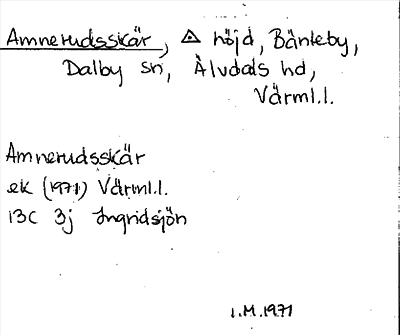 Amnerudsskär, △ höjd, Bänteby,
Dalby sn, Älvdals hd,
Värml.l.
Amnerudsskär
ek (1971) Värml.l.
13C 3j Ingridsjön
I.M.1971